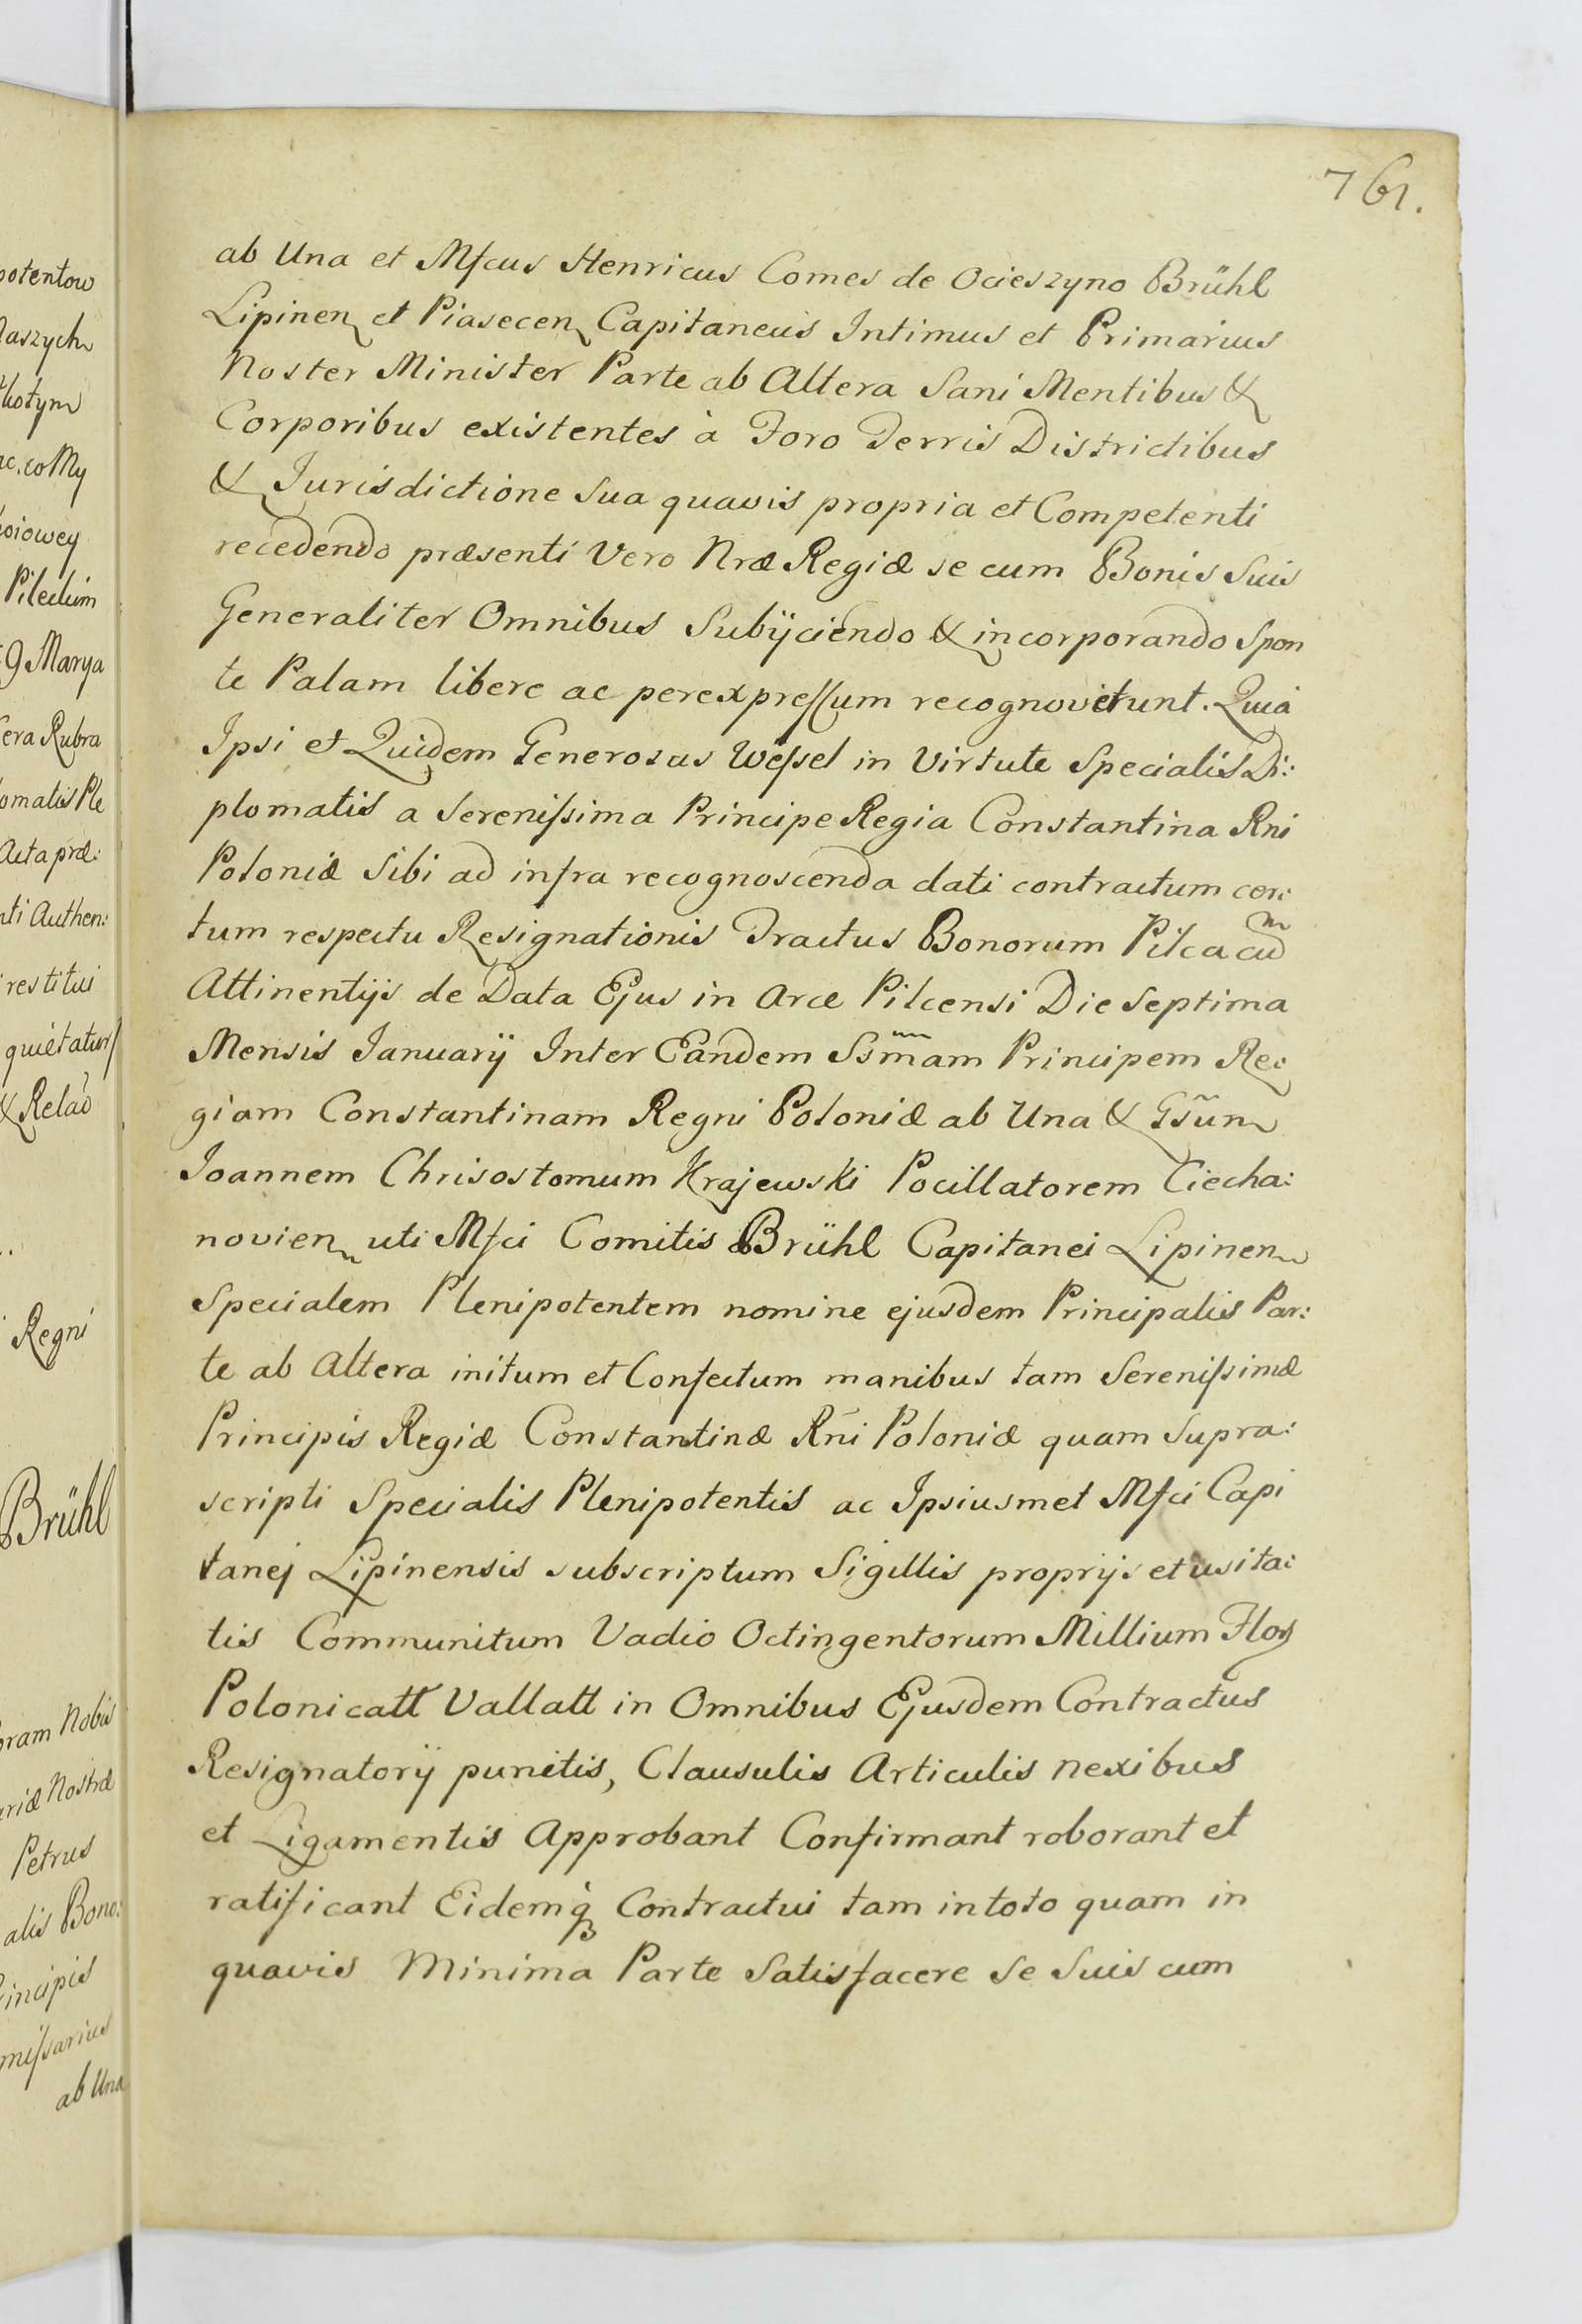 761.
ab Una et Mfcus Henricus Comes de Ocieszyno Brühl
Lipinen et Piasecen Capitaneus Intimus et Primarius
Noster Minister Parte ab Altera Sani Mentibus &
Corporibus existentes à Foro Terris Districtibus
& Jurisdictione Sua quavis propria et Competenti
recedendo præsenti Vero Nræ Regiæ se cum Bonis Suis
Generaliter Omnibus Subijciendo & incorporando Spon
te Palam libere ac perexpressum recognoverunt. Quia
Ipsi et Quidem Generosus Wessel in Virtute Specialis Di:
plomatis a Serenissima Principe Regia Constantina Rni
Poloniæ Sibi ad infra recognoscenda dati contractum cer:
tum respectu Resignationis Tractus Bonorum Pilca cum
Attinentijs de Data Ejus in Arce Pilcensi Die Septima
Mensis Januarij Inter Eandem Ssm̃am Principem Re:
giam Constantinam Regni Poloniæ ab Una & Gsũm
Joannem Chrisostomum Krajewski Pocillatorem Ciecha:
novien uti Mfci Comitis Brühl Capitanei Lipinen
Specialem Plenipotentem nomine ejusdem Principalis Par:
te ab Altera initum et Confectum manibus tam Serenissimæ
Principis Regiæ Constantinæ Rñi Poloniæ quam Supra:
scripti Specialis Plenipotentis ac Ipsiusmet Mfci Capi
tanej Lipinensis subscriptum Sigillis proprijs et usita:
tis Communitum Vadio Octingentorum Millium Flor
Polonicatt Vallatt in Omnibus Ejusdem Contractus
Resignatorij punctis, Clausulis Articulis nexibus
et Ligamentis Approbant Confirmant roborant et
ratificant Eidemq̃ Contractui tam in toto quam in
quavis Minima Parte Satisfacere Se Suis cum
potentow
aszych
Marya
era Rubra
omatis Ple
Acta præ:
nti Authen:
restitui
quietatur
& Relaõ
Regni
Brühl
oram Nobis
ariæ Nostræ
Petrus
alis Bono:
incipis
missarius
ab Una